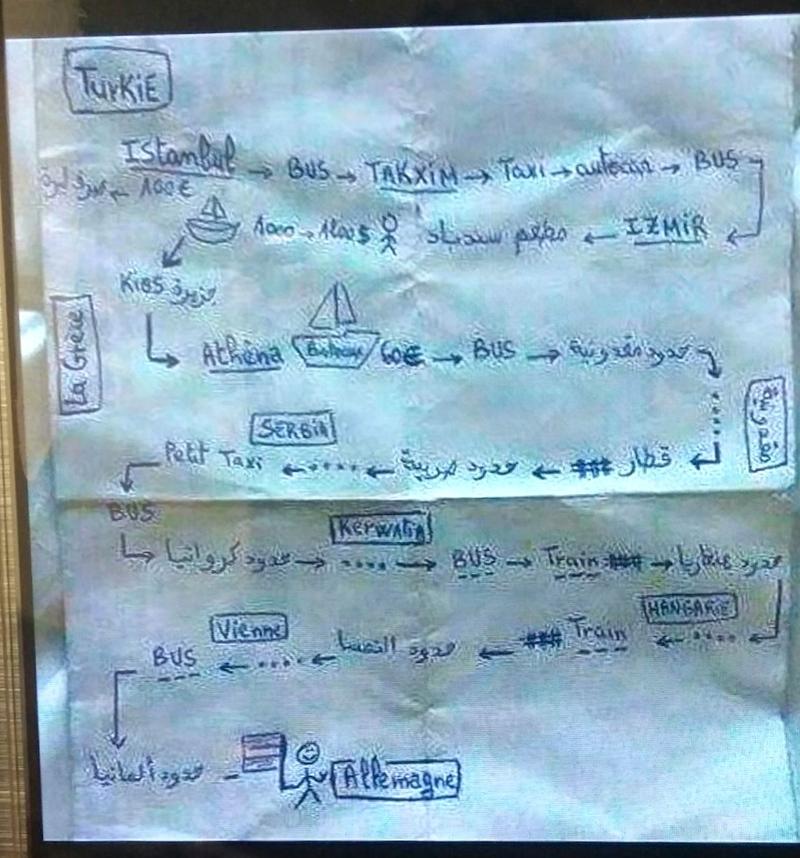 TURKIE
Istanbul → BUS → TAKXIM → Taxi → autocar → BUS
← 100€
IZMIR ← مطعم سندباد 1000 → 1200$
جزيرة KIOS
La Grèce
Athèna 60€ → BUS → حدود مقدونية
مقدونية
SERBIA
قطار ### ← حدود صربية ← .... ← Petit Taxi
BUS
KERWATIA
حدود كرواتيا → .... → BUS → Train ### → حدود هنغاريا
HANGARIE
Vienne
.... ← Train ### ← حدود النمسا ← .... ← BUS
حدود ألمانيا - Allemagne